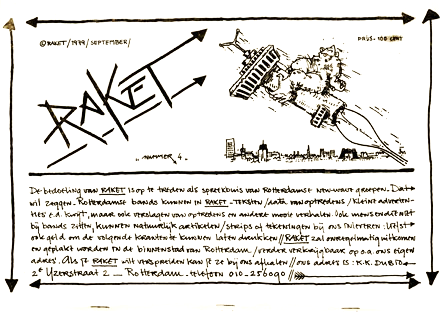 ©RAKET/1979/SEPTEMBER/
PRIJS - 100 CENT
RAKET
.. NUMMER 4 ..
De bedoeling van RAKET is op te treden als spreekbuis van Rotterdamse new-wave groepen. Dat
wil zeggen. Rotterdamse bands kunnen in RAKET - teksten / data van optredens / kleine adverten-
ties e.d. kwijt, maar ook verslagen van optredens en andere mooie verhalen. Ook mensen die niet
bij bands zitten, kunnen natuurlijk artikelen / strips of tekeningen bij ons inleveren. Liefst
ook geld om de volgende kranten te kunnen laten drukken // RAKET zal onregelmatig uitkomen
en geplakt worden in de binnenstad van Rotterdam / verder verkrijgbaar op o.a. ons eigen
adres. Als je RAKET wilt verspreiden kan je ze bij ons afhalen // ons adres is: K.K. Dubio
2e IJzerstraat 2 — Rotterdam. telefoon 010-256090 //